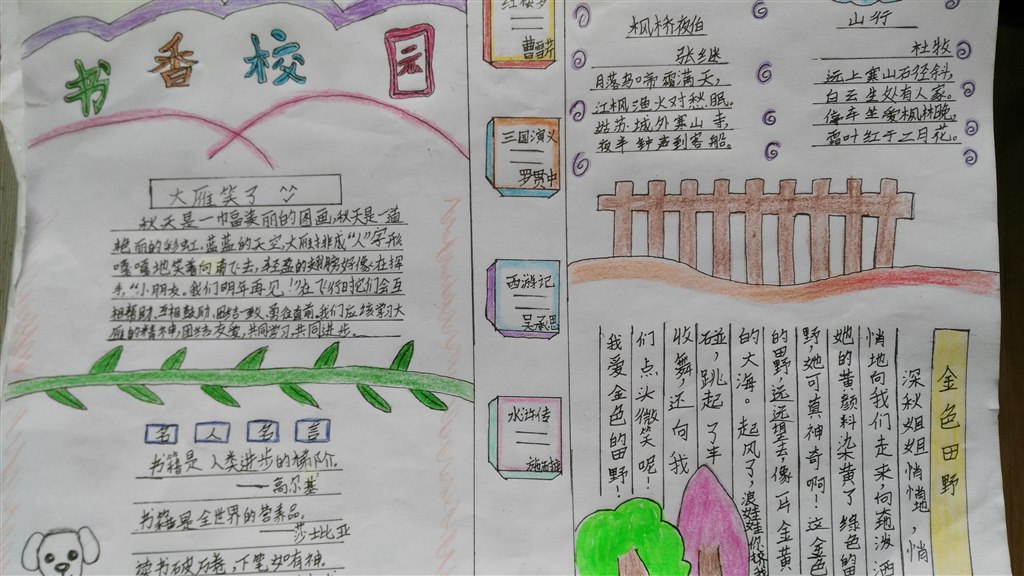 书香校园
大雁笑了
秋天是一幅美丽的图画,秋天是一道
艳丽的彩虹。蓝蓝的天空,大雁排成“人”字形
嘎嘎地笑着向南飞去,轻盈的翅膀好像在挥
手,“小朋友,我们明年再见!”在飞行时它们会互
相帮助,互相鼓励、团结一致、勇往直前。我们应该学习大
雁的精神,团结友爱,共同学习,共同进步。
名人名言
书籍是人类进步的梯阶.
——高尔基
书籍是全世界的营养品,
——莎士比亚
读书破万卷,下笔如有神.
红楼梦
曹雪芹
三国演义
罗贯中
西游记
吴承恩
水浒传
施耐庵
枫桥夜伯
张继
月落乌啼霜满天,
江枫渔火对秋眠。
姑苏城外寒山寺,
夜半钟声到客船。
山行
杜牧
远上寒山石径斜,
白云生处有人家。
停车坐爱枫林晚,
霜叶红于二月花。
金色田野
深秋姐姐悄悄地,悄
悄地向我们走来向大地泼洒
她的黄颜料染黄了绿色的田
野她可真神奇啊!这金色
的田野远远望去像一片金黄
的大海。起风了,浪娃娃
碰,跳起了丰
收舞,还向我
们点头微笑呢!
我爱金色的田野!